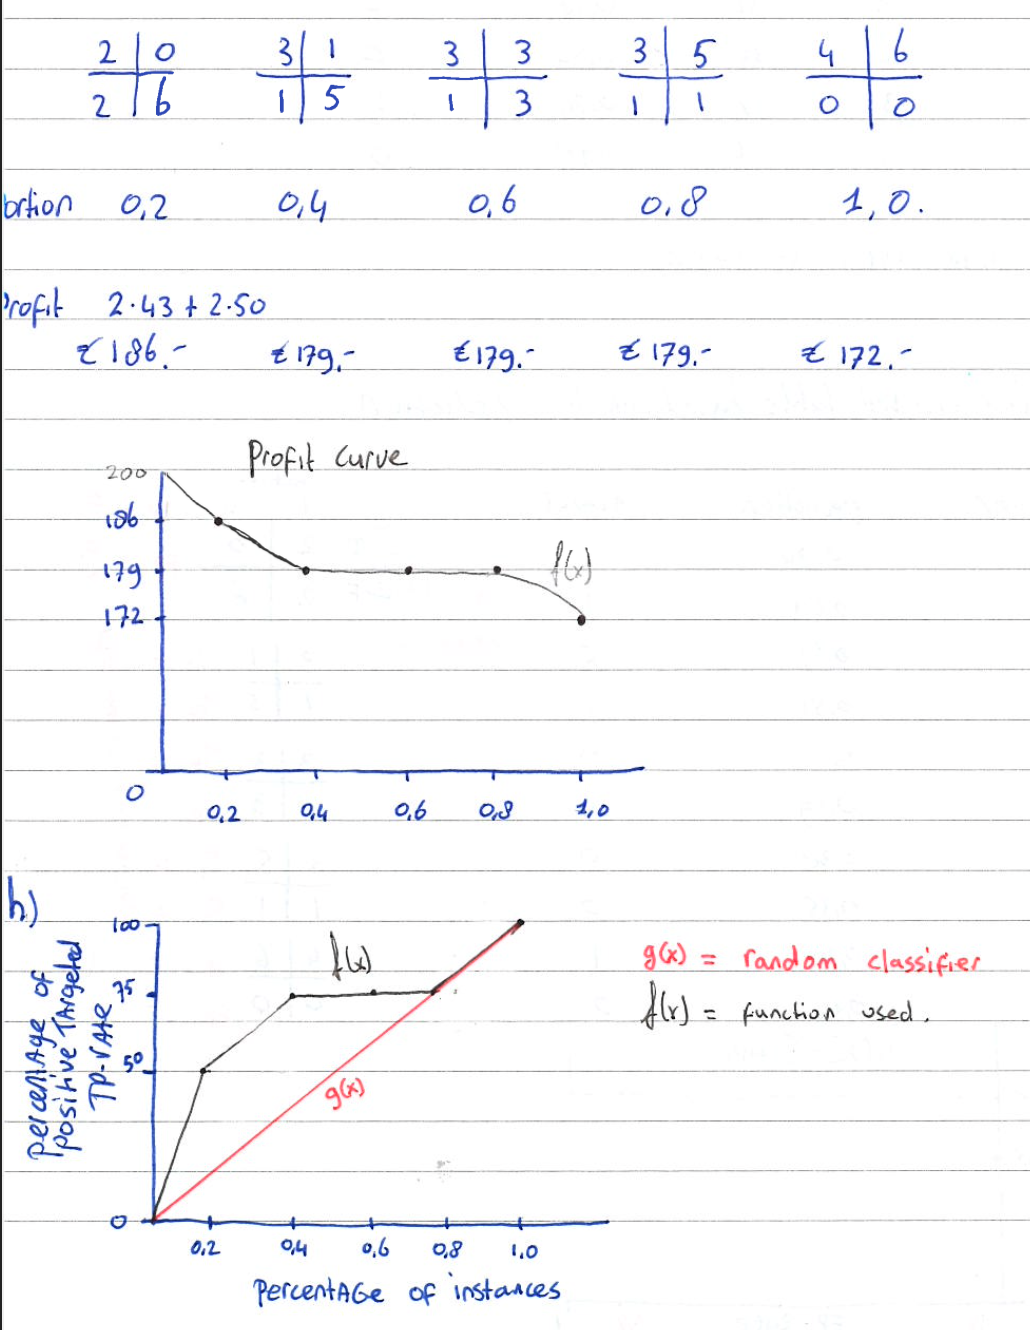 2 0 3 1 3 3 3 5 4 6
2 6 1 5 1 3 1 1 0 0
ortion 0,2 0,4 0,6 0,8 1,0.
Profit 2.43 + 2.50
€186.- €179,- €179.- €179.- €172.-
Profit Curve
200
186
179
172
f(x)
0
0,2 0,4 0,6 0,8 1,0
h)
Percentage of
Positive Targeted
TP-rate
100
75
50
0
f(x)
g(x)
g(x) = random classifier
f(x) = function used.
0.2 0,4 0,6 0,8 1.0
Percentage of instances